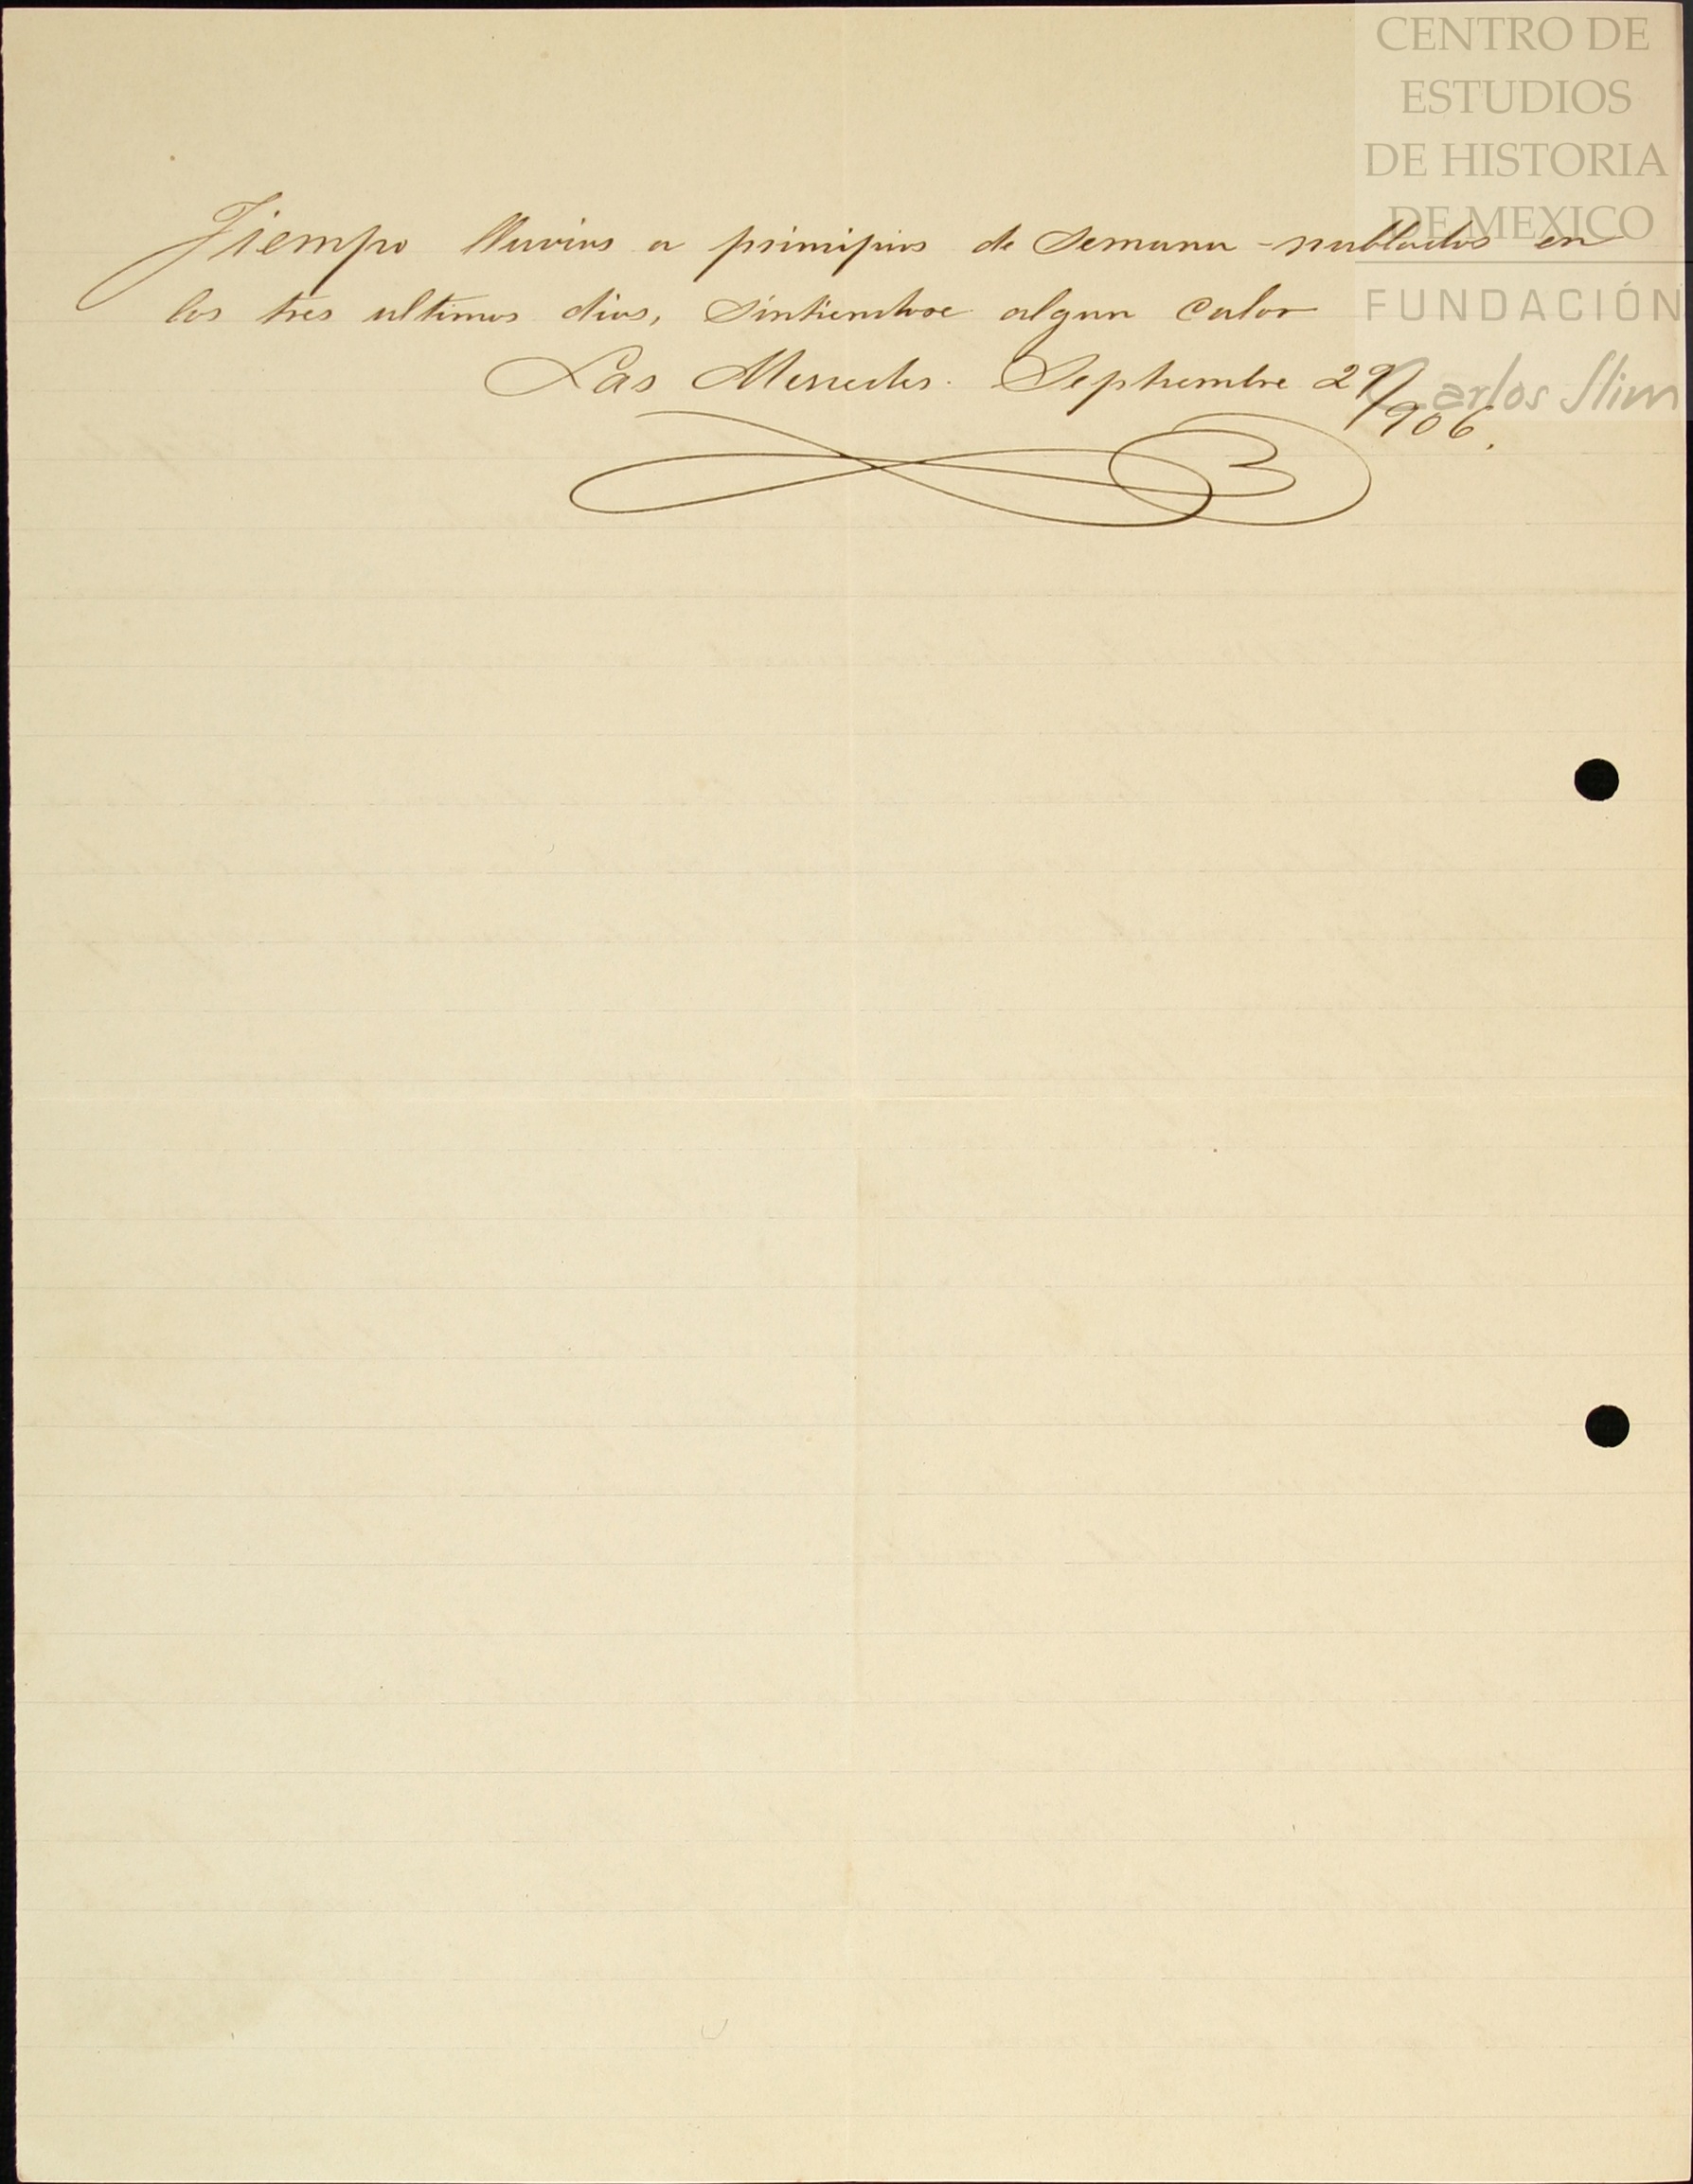 CENTRO DE
ESTUDIOS
DE HISTORIA
DE MEXICO
FUNDACIÓN
Carlos Slim
Tiempo lluvias a principios de Semana - nublados en
los tres ultimos dias, Sintiendose algun Calor
Las Mercedes. Septiembre 29/906.